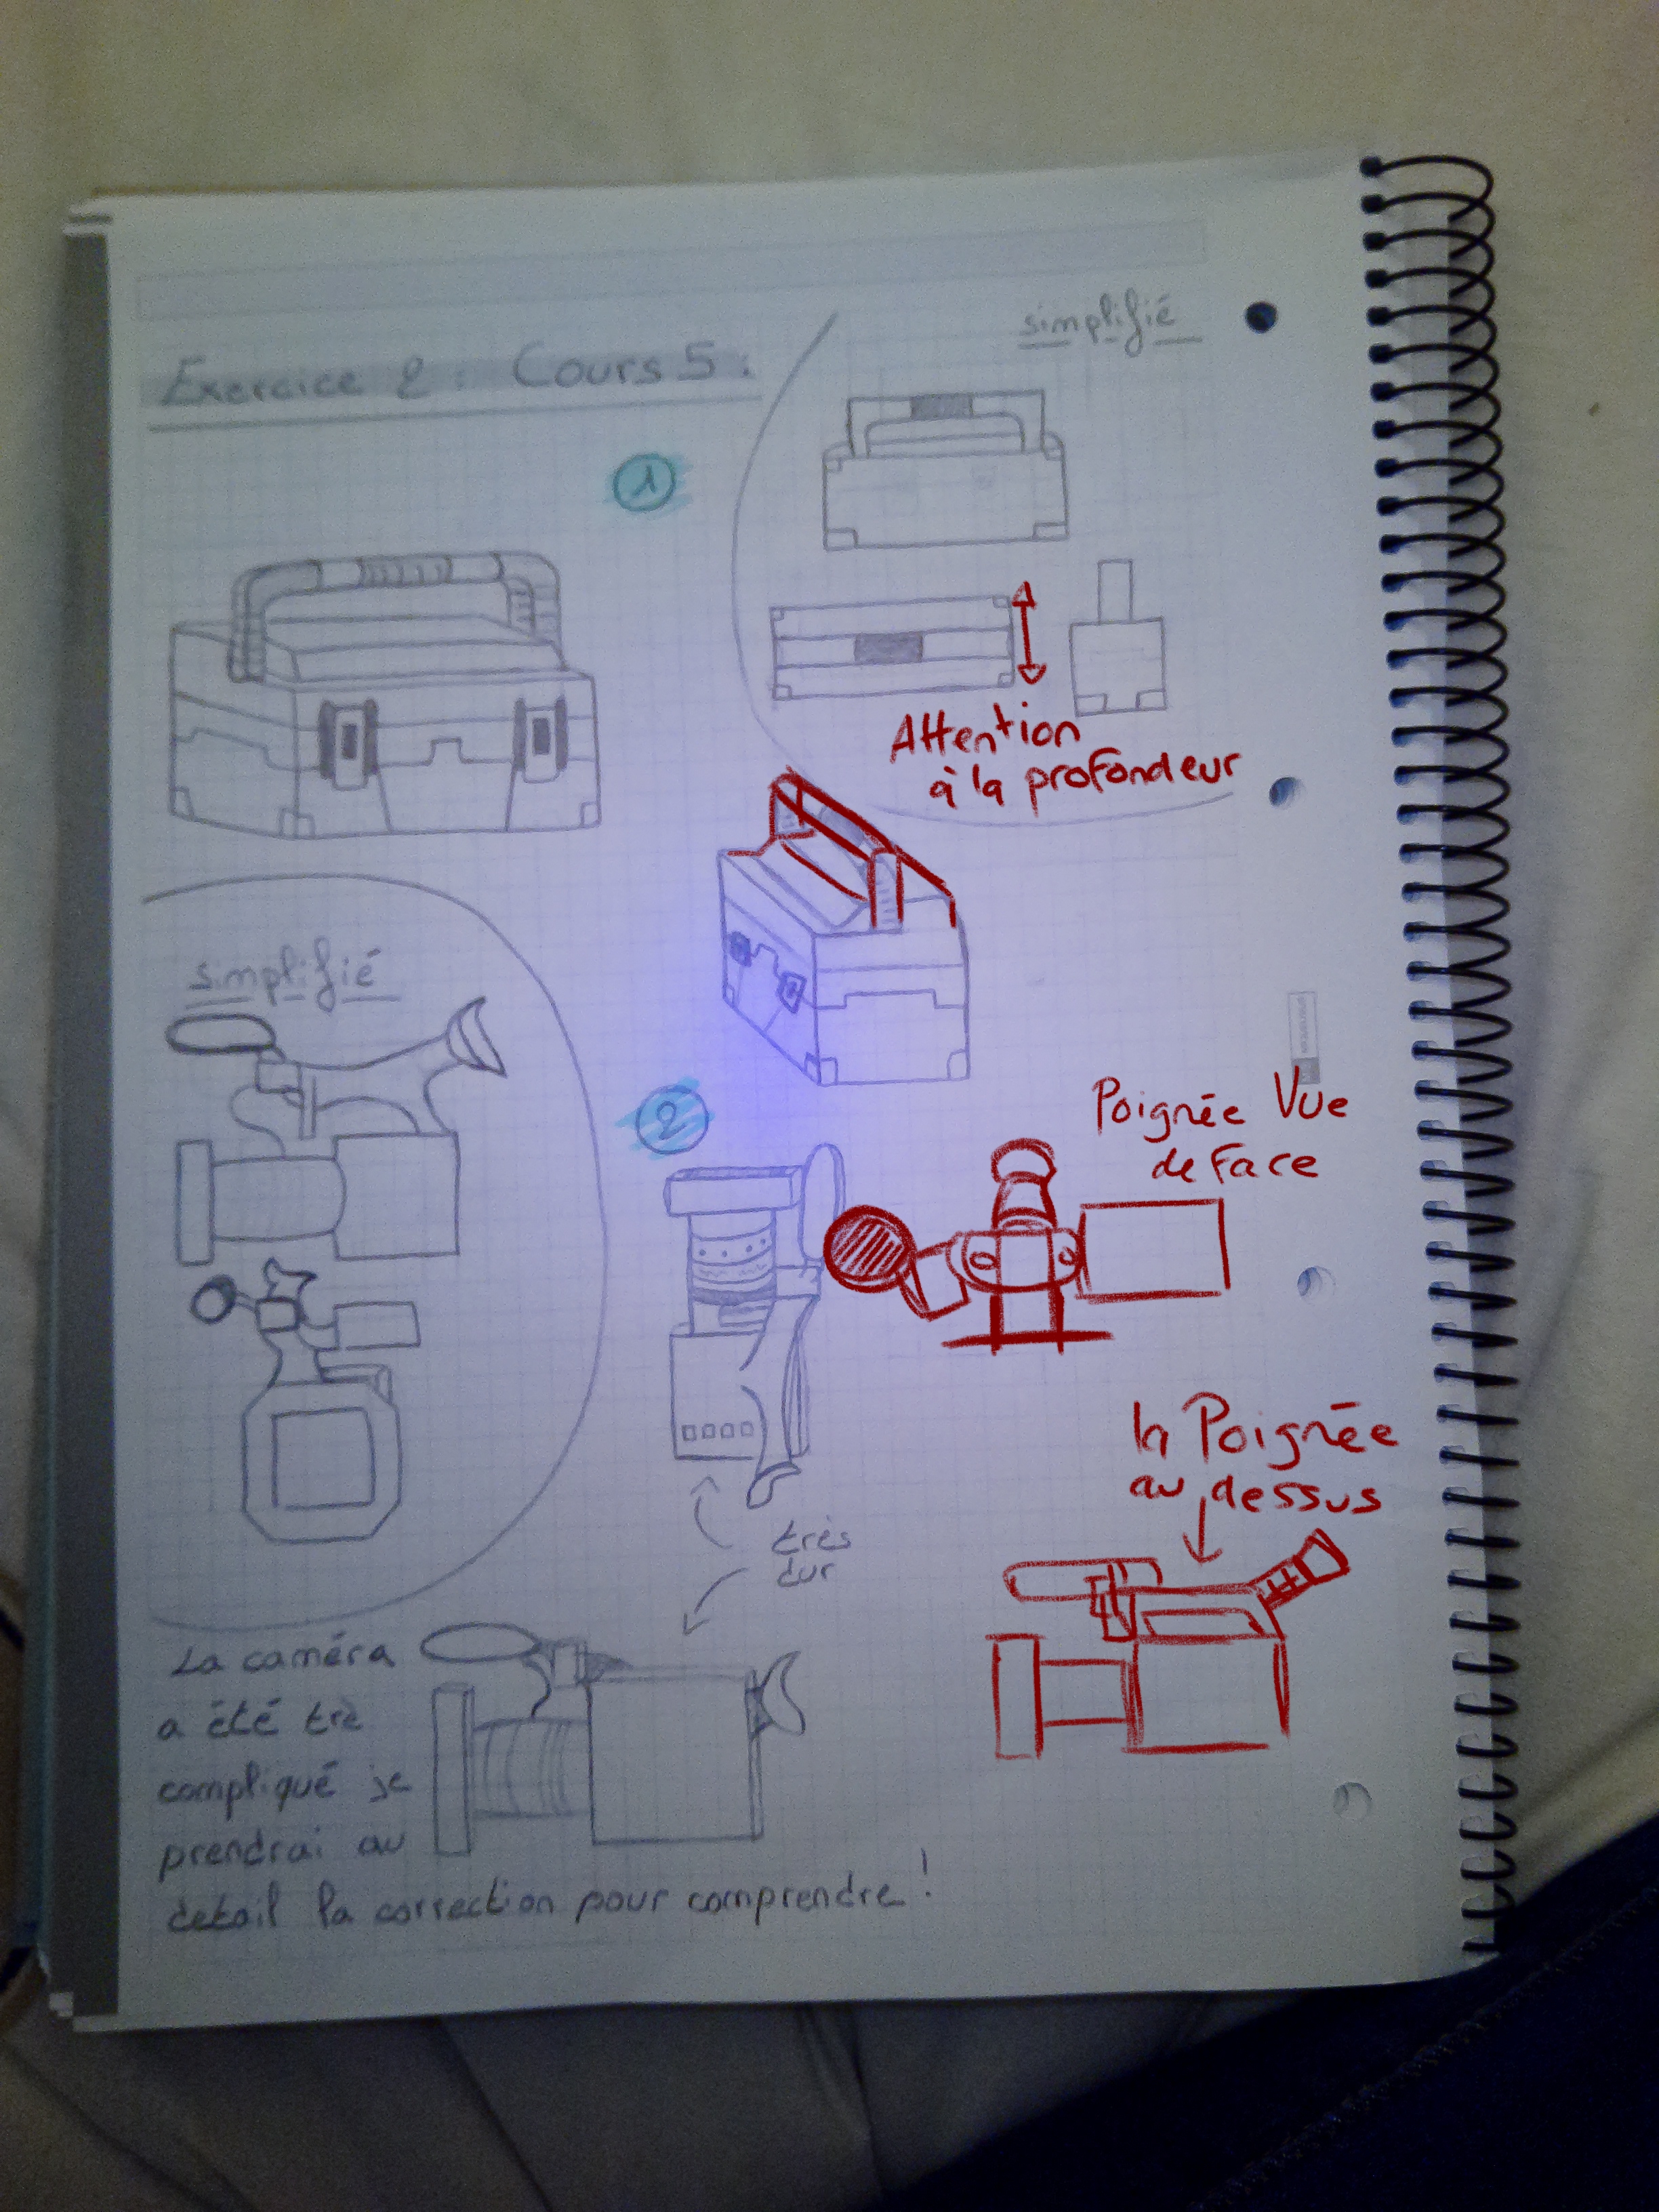 simplifié
Exercice 2 : Cours 5 :
1
Attention
à la profondeur
simplifié
2
Poignée Vue
de face
la Poignée
au dessus
très
dur
La caméra
a été trè
compliqué je
prendrai au
detail la correction pour comprendre !